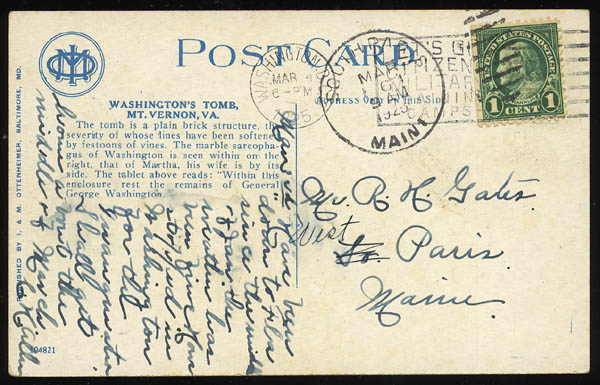 POST CARD
WASHINGTON'S TOMB,
MT. VERNON, VA.
The tomb is a plain brick structure, the
severity of whose lines have been softened
by festoons of vines. The marble sarcopha-
gus of Washington is seen within on the
right, that of Martha, his wife is by its
side. The tablet above reads: "Within this
enclosure rest the remains of General
George Washington."
PUBLISHED BY I. & M. OTTENHEIMER, BALTIMORE, MD.
104821
ADDRESS ON THIS SIDE
WASHINGTON, D.C.
MAR 4
6-PM
1925
SOUTH PARIS
MAR
1925
MAINE
UNITED STATES POSTAGE
1 CENT 1
Mr. R H Gates.
West So. Paris
Maine.
have been
down to
since the middle
of Jan. the
weather has
been fine
stopped in
Washington
for the
inauguration
Shall get
home into the
middle of March